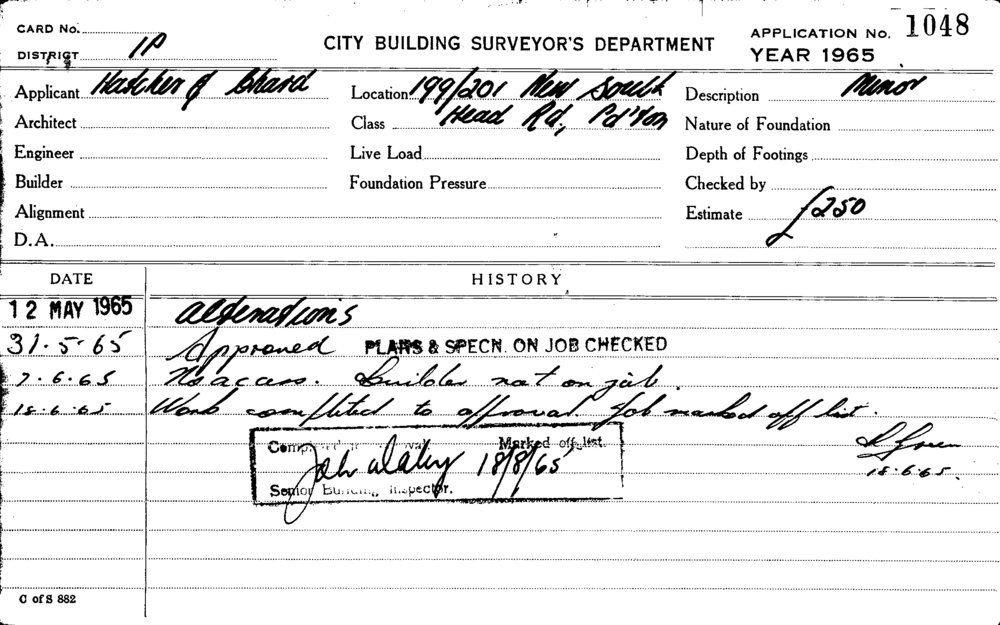 CARD No.
DISTRICT 1P
CITY BUILDING SURVEYOR'S DEPARTMENT
APPLICATION No. 1048
YEAR 1965
Applicant Hatcher & Chard
Location 199/201 New South
Head Rd, Pd'ton
Description Minor
Architect
Class
Nature of Foundation
Engineer
Live Load
Depth of Footings
Builder
Foundation Pressure
Checked by
Alignment
Estimate £250
D.A.
DATE HISTORY
12 MAY 1965 Alterations
31.5.65 Approved PLANS & SPECN. ON JOB CHECKED
7.6.65 No access. Builder not on job.
18.6.65 Work completed to approval. Job marked off list.
18.6.65.
Marked off list.
18/8/65
Senior Building Inspector.
C of S 882